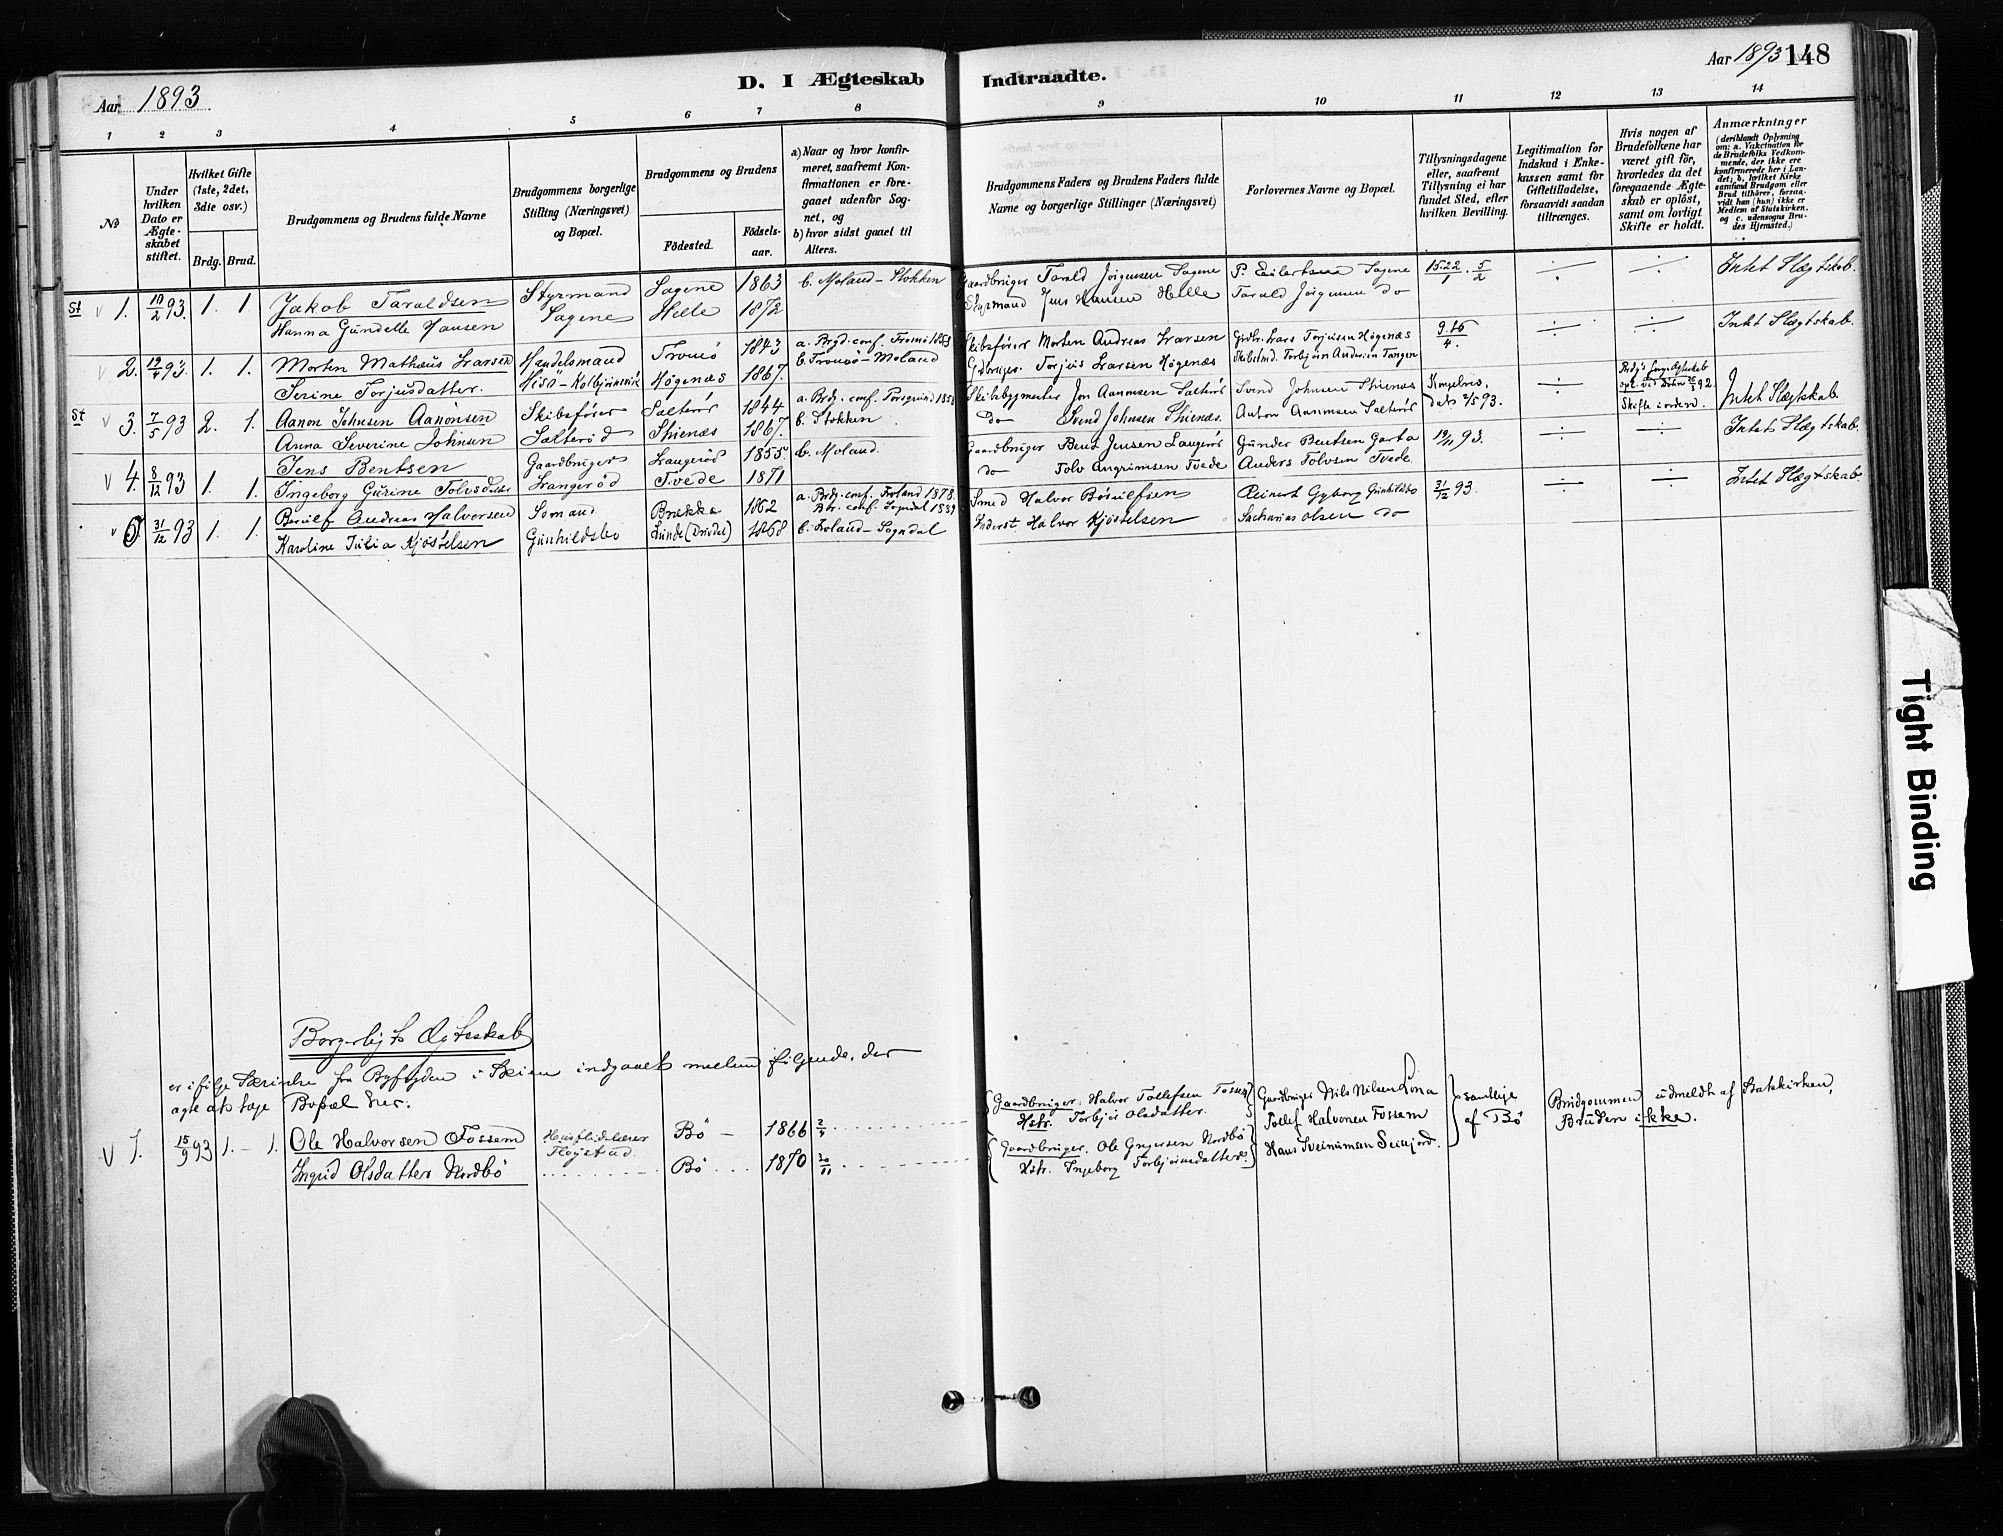 D. I Ægteskab Indtraadte.
Aar 1893
Aar 1893 148
1 2 3 4 5 6 7 8 9 10 11 12 13 14
No
Under hvilken Dato er Ægteskabet stiftet.
Hvilket Gifte (1ste, 2det, 3die osv.)
Brdg. Brud.
Brudgommens og Brudens fulde Navne
Brudgommens borgerlige Stilling (Næringsvei) og Bopæl.
Brudgommens og Brudens
Födested.
Födselsaar.
a) Naar og hvor konfirmeret, saafremt Konfirmationen er foregaaet udenfor Sognet, og
b) hvor sidst gaaet til Alters.
Brudgommens Faders og Brudens Faders fulde Navne og borgerlige Stillinger (Næringsvei)
Forlovernes Navne og Bopæl.
Tillysningsdagene eller, saafremt Tillysning ei har fundet Sted, efter hvilken Bevilling.
Legitimation for Indskud i Enkekassen samt for Giftetilladelse, forsaavidt saadan tiltrænges.
Hvis nogen af Brudefolkene har været gift för, hvorledes da det foregaaende Ægteskab er oplöst, samt om lovligt Skifte er holdt.
Anmærkninger
(deriblandt Oplysning om: a. Vakcination for de Brudefolks Vedkommende, der ikke ere konfirmerede her i Landet; b. hvilket Kirkesamfund Brudgom eller Brud tilhörer, forsaavidt han (hun) ikke er Medlem af Statskirken, og c. udensogns Brudes Hjemsted.)
St 1. 10/2 93. 1. 1. Jakob Taraldsen Styrmand Sagene 1863 b. Moland - Stokken Gaardbruger Tarald Jörgensen Sagene P. Eilertsen Sagene 15.22/1. 5/2 Intet Slægtskab.
Hanna Gundelle Hansen Sagene Helle 1872 Styrmand Jens Hansen Helle Tarald Jörgensen do
2. 19/4 93. 1. 1. Morten Mathæus Larsen Handelsmand Tromö 1843 Skibsförer Morten Andreas Larsen 9.16/4. Intet Slægtskab.
Serine Torjusdatter. Hisö - Kolbjörnsvik Högenæs 1867. b. Tromö - Moland Torjus Larsen Högenæs
St 3. 7/5 93 2. 1. Aanon Johnsen Aanonsen Skibsförer Salteröd 1844 a. Brdg. conf. Porsgrund Skibsbygmester Jon Aanonsen Salteröd Svend Johnsen Skienæs Intet Slægtskab.
Anna Severine Johnsen Salteröd Skienæs 1867. b. Stokken do Svend Johnsen Skienæs. Anton Aanonsen Salteröd Skifte i orden.
4. 8/12 93 1. 1. Jens Bentsen Gaardbruger Langeröd 1855 b. Moland. Gaardbruger Bent Jensen Langeröd Gunder Bentsen Garta 19/11 93. Intet Slægtskab.
Ingeborg Gurine Tolvsdatter Langeröd Tvede 1871 do Tolv Angrimsen Tvede Anders Tolvsen Tvede.
5 31/12 93 1. 1. Bosulf Andreas Halvorsen Sömand Brække 1862 a. Brdg. conf. Froland 1878. Smed Halvor Bosulfsen Reinert Gyborg Gunhildsbo 31/12 93. Intet Slægtskab.
Karoline Julia Kjöstelsen Gunhildsbo Lunde 1868 b. Froland - Sogndal Inderst. Halvor Kjöstelsen Zacharias Olsen do
Borgerligt Ægteskab
er ifölge Skrivelse fra Byfogden i Skien indgaaet mellem fölgende, der
agte at tage Bopæl her.
1. 15/9 93 1. - 1. Ole Halvorsen Fossem Husflidslærer Bö - 1866 2/4 Gaardbruger. Halvor Tollefsen Fossem Gaardbruger Nils Nilsen samtlige af Bö Brudgommen udmeldt af Statskirken,
Flöjstad. Hstr. Torbjör Olsdatter. Tollef Halvorsen Fossem Bruden ikke.
Ingrid Olsdatter Nordbö Bö 1870 30/11 Gaardbruger. Ole Nordbö Hans Sveinuman Seljord.
Hstr. Ingeborg Torbjörnsdatter.
Tight Binding